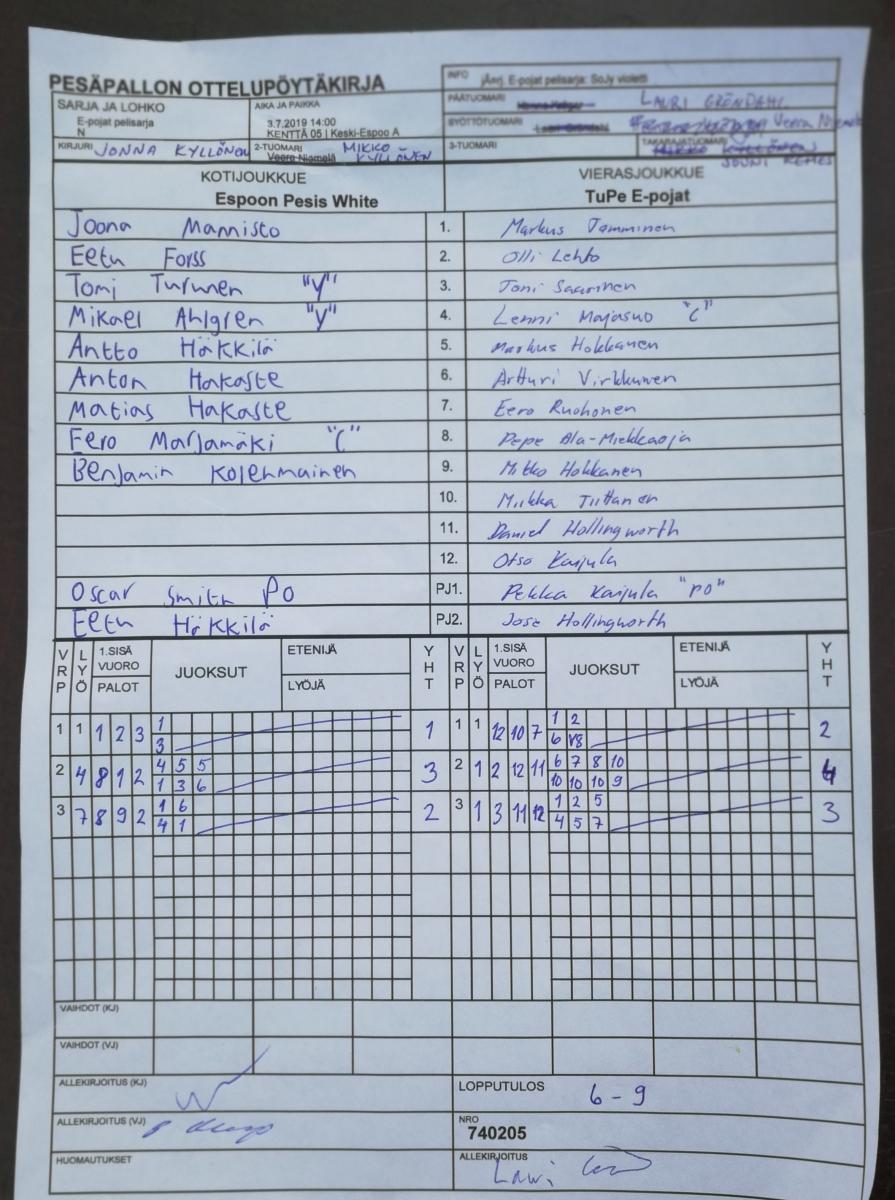 PESÄPALLON OTTELUPÖYTÄKIRJA
INFO jÄrj. E-pojat pelisarja: SoJy violetti
SARJA JA LOHKO
E-pojat pelisarja
N
AIKA JA PAIKKA
3.7.2019 14:00
KENTTÄ 05 | Keski-Espoo A
PÄÄTUOMARI LAURI GRÖNDAHL
SYÖTTÖTUOMARI Lauri Gröndahl Veera Niemelä
KIRJURI JONNA KYLLÖNEN
2-TUOMARI Veera Niemelä MIKKO KYLLÖNEN
3-TUOMARI
TAKARAJATUOMARI MIKKO KYLLÖNEN
JOUNI REMES
KOTIJOUKKUE
Espoon Pesis White
VIERASJOUKKUE
TuPe E-pojat
Joona Mannisto 1. Markus Tamminen
Eetu Forss 2. Olli Lehto
Tomi Turunen "Y" 3. Toni Saarinen
Mikael Ahlgren "Y" 4. Lenni Majasuo "C"
Antto Häkkilä 5. Markus Hokkanen
Anton Hakaste 6. Artturi Virkkunen
Matias Hakaste 7. Eero Ruohonen
Eero Marjamäki "C" 8. Pepe Ala-Miekkaoja
Benjamin Kolehmainen 9. Mitko Hokkanen
10. Miikka Tiittanen
11. Daniel Hollingworth
12. Otso Karjula
Oscar Smith PO PJ1. Pekka Karjula "PO"
Eetu Häkkilä PJ2. Jose Hollingworth
VRP LYÖ 1.SISÄ VUORO PALOT JUOKSUT ETENIJÄ LYÖJÄ YHT VRP LYÖ 1.SISÄ VUORO PALOT JUOKSUT ETENIJÄ LYÖJÄ YHT
1 1 1 2 3 1 1 1 1 12 10 7 1 2 2
3 6 8
2 4 8 1 2 4 5 5 3 2 1 2 12 11 6 7 8 10 4
1 3 6 10 10 10 9
3 7 8 9 2 1 6 2 3 1 3 11 12 1 2 5 3
4 1 4 5 7
VAIHDOT (KJ)
VAIHDOT (VJ)
ALLEKIRJOITUS (KJ)
LOPPUTULOS 6 - 9
ALLEKIRJOITUS (VJ)
NRO
740205
HUOMAUTUKSET
ALLEKIRJOITUS Lauri